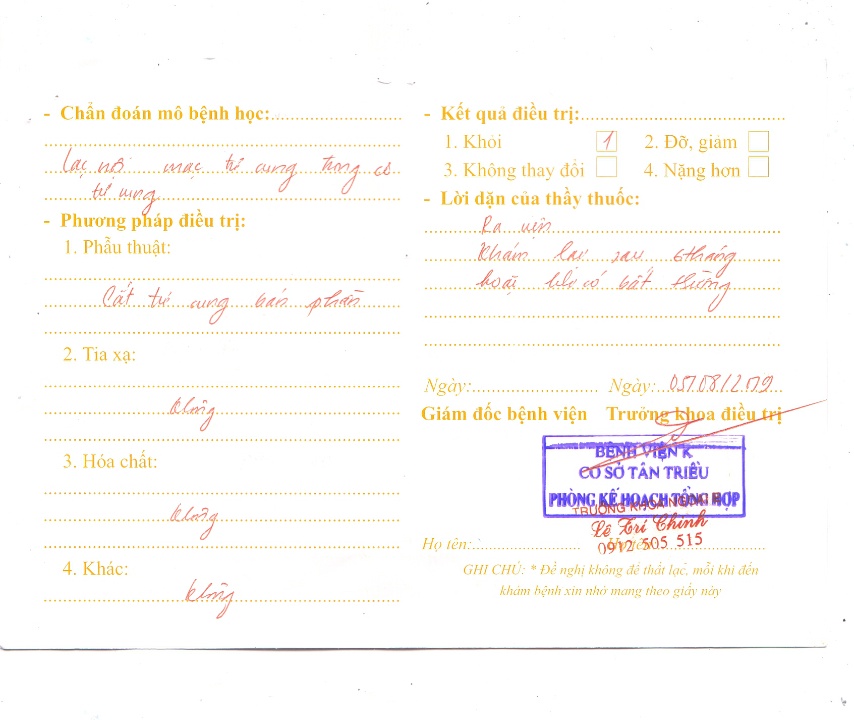 - Chẩn đoán mô bệnh học:
Lạc nội mạc tử cung trong cơ
tử cung
- Phương pháp điều trị:
1. Phẫu thuật:
Cắt tử cung bán phần
2. Tia xạ:
không
3. Hóa chất:
không
4. Khác:
không
- Kết quả điều trị:
1. Khỏi 1 2. Đỡ, giảm
3. Không thay đổi 4. Nặng hơn
- Lời dặn của thầy thuốc:
Ra viện
Khám lại sau 6 tháng
hoặc khi có bất thường
Ngày: Ngày: 05/08/2019
Giám đốc bệnh viện Trưởng khoa điều trị
BỆNH VIỆN K
CƠ SỞ TÂN TRIỀU
PHÒNG KẾ HOẠCH TỔNG HỢP
TRƯỞNG KHOA NGOẠI
Lê Trí Chinh
0912 505 515
Họ tên: Họ tên:
GHI CHÚ: * Đề nghị không để thất lạc, mỗi khi đến
khám bệnh xin nhớ mang theo giấy này